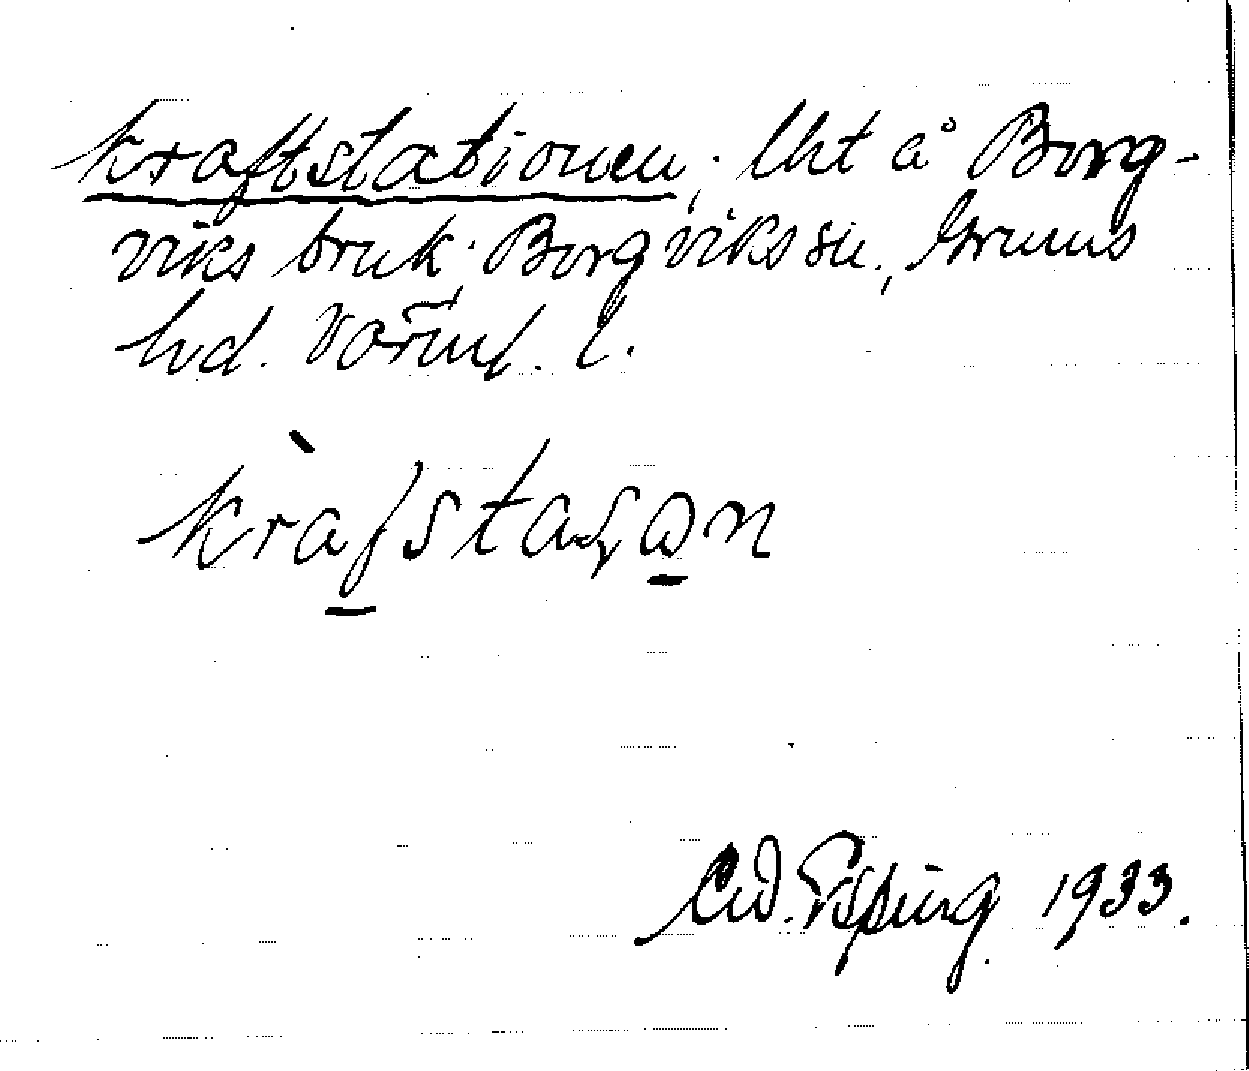 Kraftstationen, lht å Borg-
viks bruk, Borgviks sn., Grums
hd. Värml. l.
kràfstaʂɷn
Ed. Esping 1933.